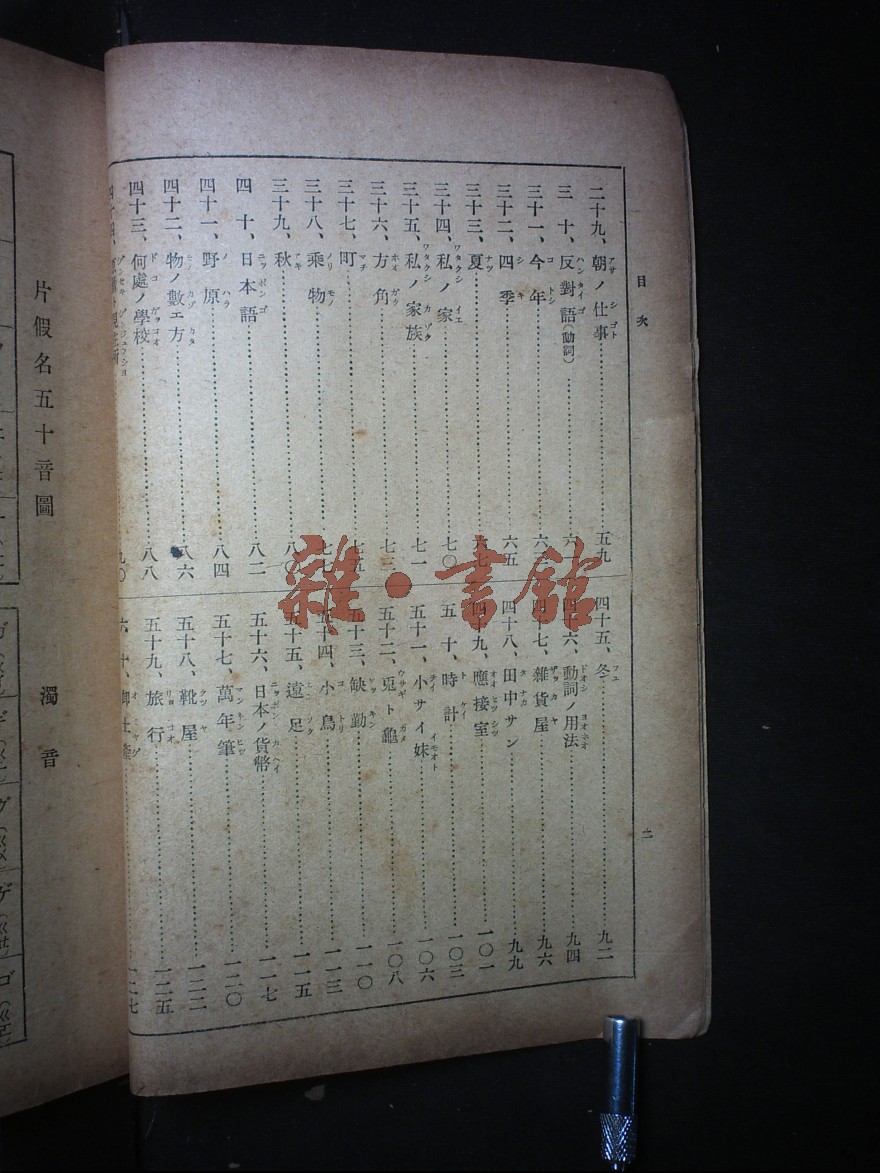 目次
二十九、朝ノ仕事 五九
三 十、反對語(動詞) 六一
三十一、今年
三十二、四季 六五
三十三、夏 六七
三十四、私ノ家 七〇
三十五、私ノ家族 七一
三十六、方角 七三
三十七、町 七五
三十八、乘物 七七
三十九、秋 八〇
四 十、日本語 八二
四十一、野原 八四
四十二、物ノ數エ方 八六
四十三、何處ノ學校 八八
九〇
四十五、冬 九二
四十六、動詞ノ用法 九四
四十七、雜貨屋 九六
四十八、田中サン 九九
四十九、應接室 一〇一
五 十、時計 一〇三
五十一、小サイ妹 一〇六
五十二、兎ト龜 一〇八
五十三、缺勤 一一〇
五十四、小鳥 一一三
五十五、遠足 一一五
五十六、日本ノ貨幣 一一七
五十七、萬年筆 一二〇
五十八、靴屋 一二二
五十九、旅行 一二五
六 十、御土產 一二七
二
片假名五十音圖
濁音
雜·書館